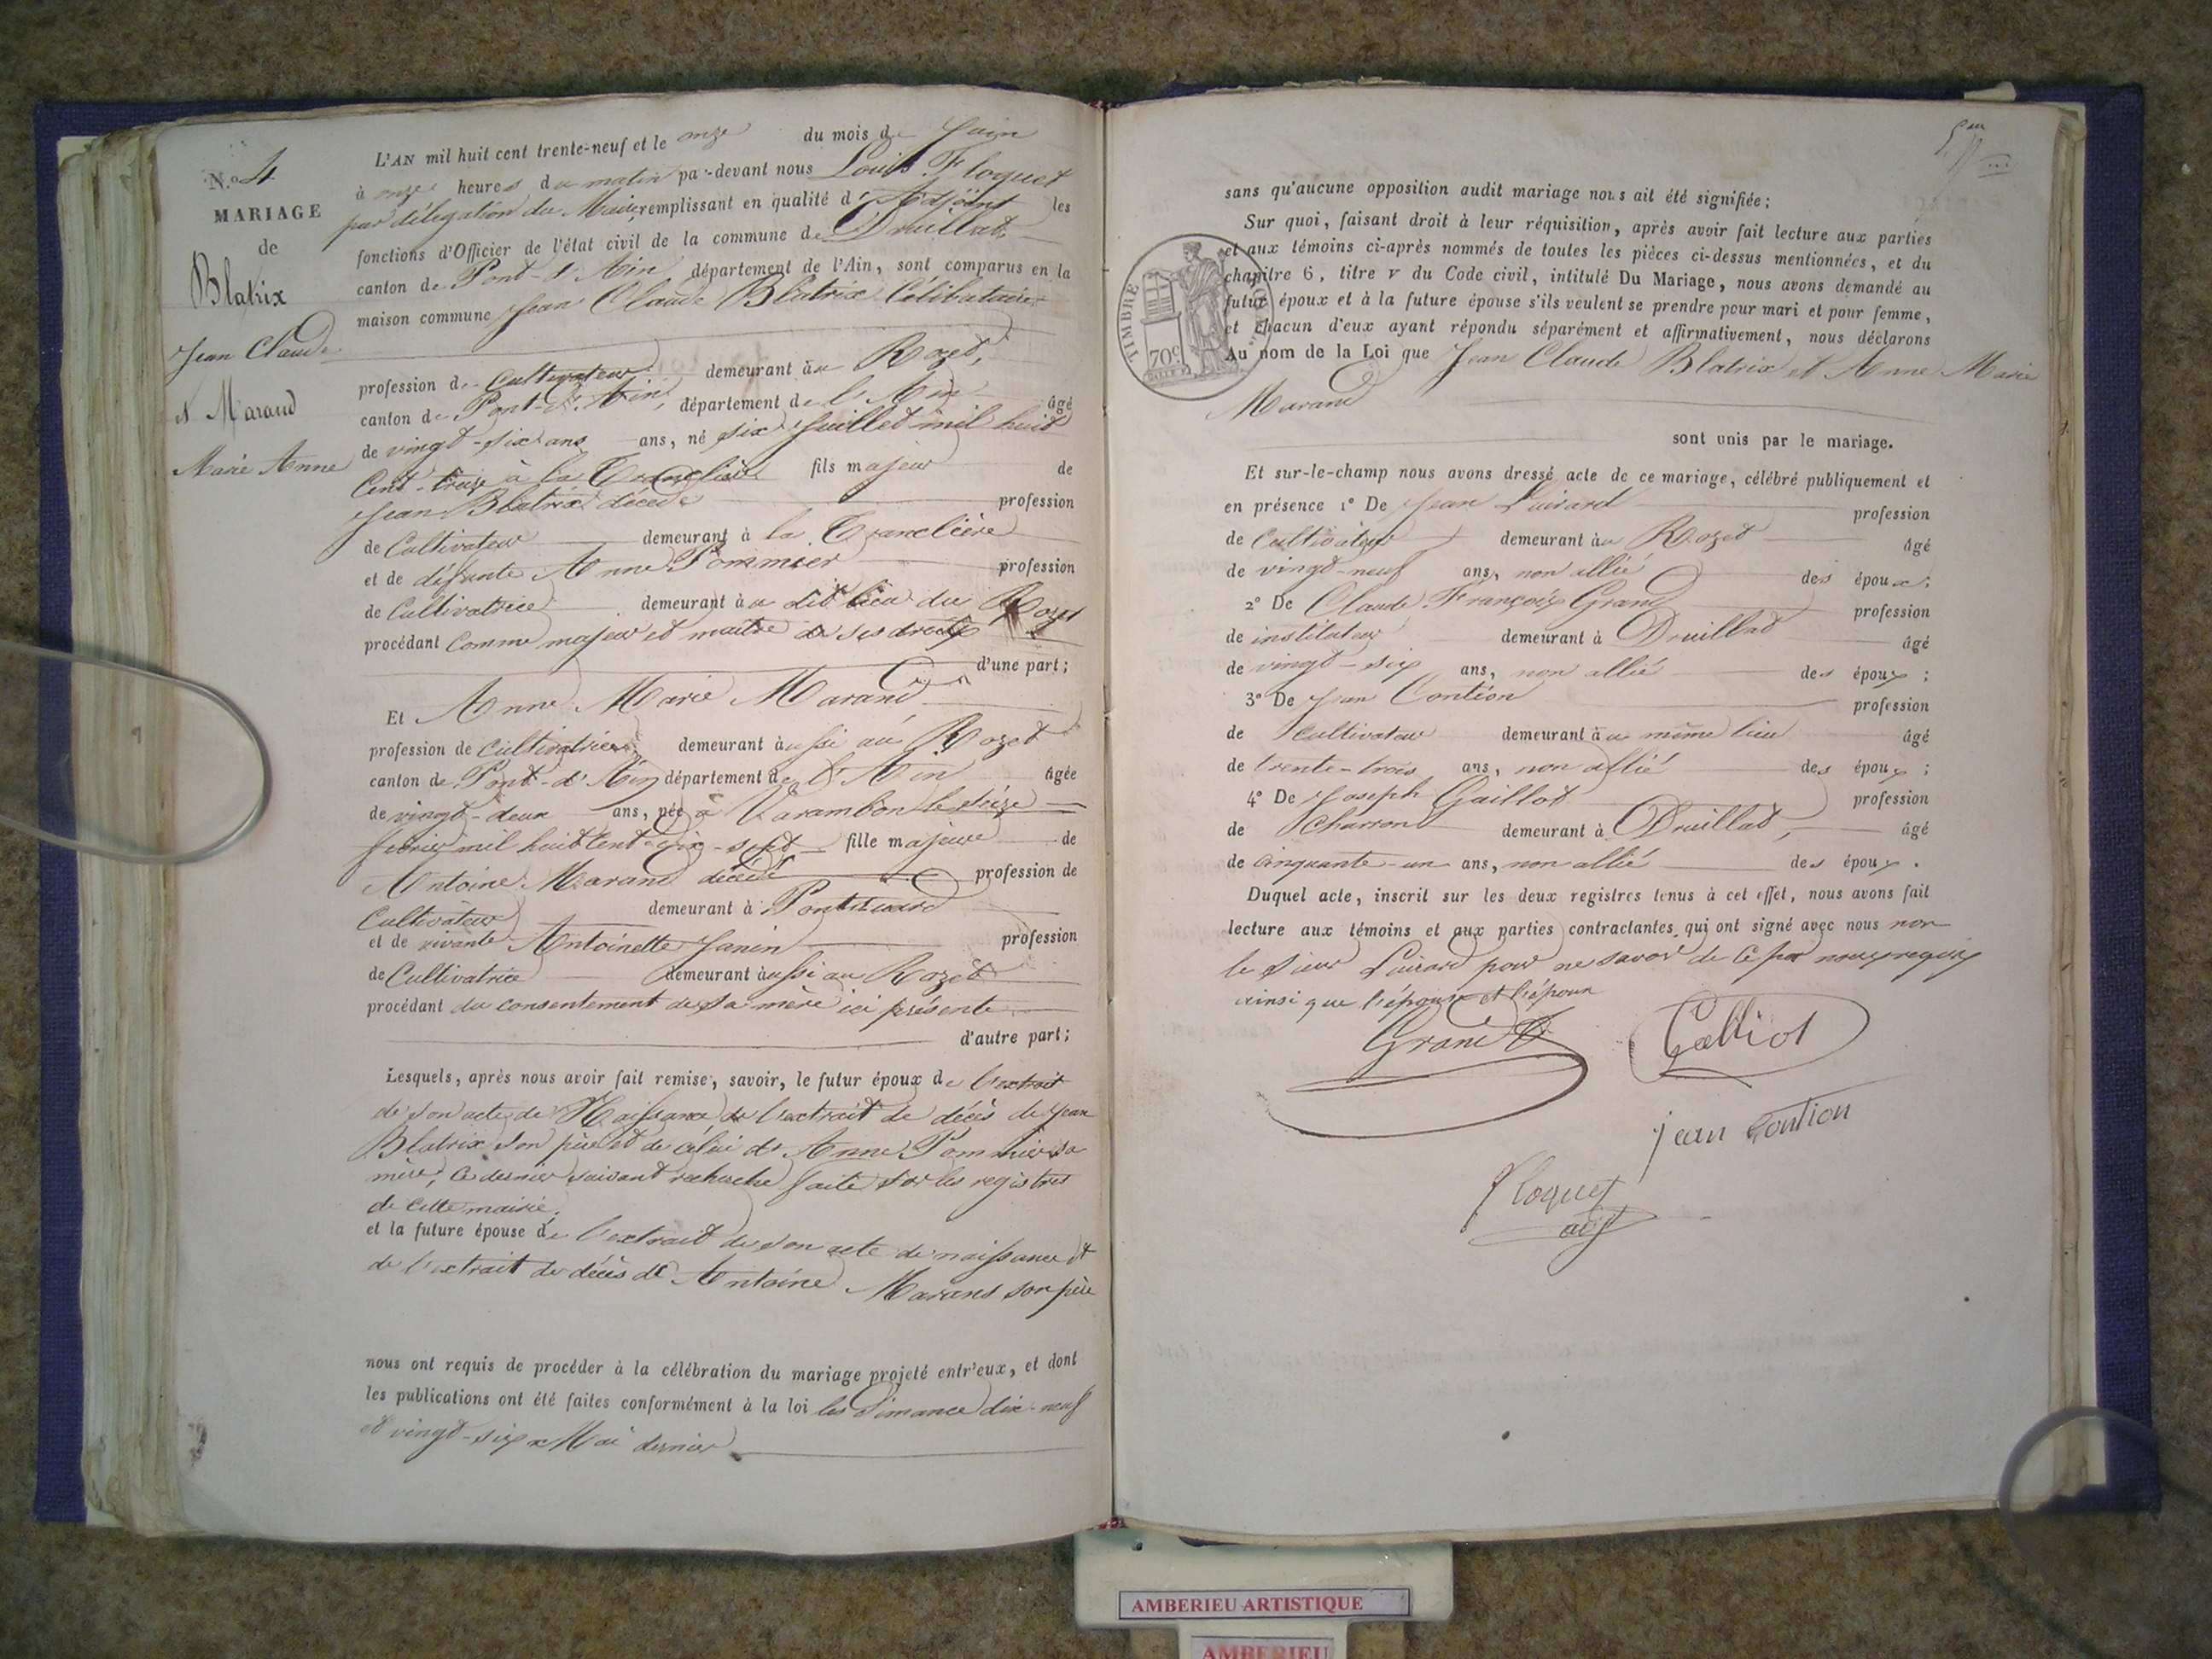 N.o 4
MARIAGE
de
Blatrix
Jean Claude
et Marand
Marie Anne
L'AN mil huit cent trente-neuf et le onze du mois de Juin
à onze heures du matin par-devant nous Louis Floquet
par délégation du Maire, remplissant en qualité d'Adjoint les
fonctions d'Officier de l'état civil de la commune de Druillat,
canton de Pont-d'Ain, département de l'Ain, sont comparus en la
maison commune Jean Claude Blatrix Célibataire
profession de Cultivateur demeurant au Rozet,
canton de Pont-d'Ain, département de l'Ain âgé
de vingt-six ans ans, né six Juillet mil huit
Cent-treize à la Tranclière fils majeur de
Jean Blatrix décédé profession
de Cultivateur demeurant à la Tranclière
et de défunte Anne Pommier profession
de Cultivatrice demeurant au dit lieu du Rozet
procédant Comme majeur et maître de ses droits
d'une part;
Et Anne Marie Marand
profession de Cultivatrice demeurant aussi au Rozet
canton de Pont-d'Ain département de l'Ain âgée
de vingt-deux ans, née à Varambon le seize
février mil huit Cent dix-sept fille majeure de
Antoine Marand décédé profession de
Cultivateur demeurant à
et de vivante Antoinette Janin profession
de Cultivatrice demeurant aussi au Rozet
procédant du consentement de sa mère ici présente
d'autre part;
Lesquels, après nous avoir fait remise, savoir, le futur époux de l'extrait
de son acte de Naissance de l'extrait de décès de Jean
Blatrix son père et de celui de Anne Pommier sa
mère, ce dernier suivant recherche faite sur les registres
de cette mairie.
et la future épouse de l'extrait de son acte de naissance et
de l'extrait de décès de Antoine Marand son père
nous ont requis de procéder à la célébration du mariage projeté entr'eux, et dont
les publications ont été faites conformément à la loi les Dimance dix-neuf
et vingt-six Mai dernier
sans qu'aucune opposition audit mariage nous ait été signifiée;
Sur quoi, faisant droit à leur réquisition, après avoir fait lecture aux parties
et aux témoins ci-après nommés de toutes les pièces ci-dessus mentionnées, et du
chapitre 6, titre v du Code civil, intitulé Du Mariage, nous avons demandé au
futur époux et à la future épouse s'ils veulent se prendre pour mari et pour femme,
et chacun d'eux ayant répondu séparément et affirmativement, nous déclarons
Au nom de la Loi que Jean Claude Blatrix et Anne Marie
Marand
sont unis par le mariage.
TIMBRE
70c
Et sur-le-champ nous avons dressé acte de ce mariage, célébré publiquement et
en présence 1° De Jean Luirard profession
de Cultivateur demeurant au Rozet âgé
de vingt-neuf ans, non allié des époux;
2° De Claude François Grand profession
de instituteur demeurant à Druillat âgé
de vingt-six ans, non allié des époux;
3° De Jean Contion profession
de Cultivateur demeurant au même lieu âgé
de trente-trois ans, non allié des époux;
4° De Joseph Gaillot profession
de Charron demeurant à Druillat, âgé
de cinquante-un ans, non allié des époux.
Duquel acte, inscrit sur les deux registres tenus à cet effet, nous avons fait
lecture aux témoins et aux parties contractantes, qui ont signé avec nous non
le sieur Luirard pour ne savoir de ce par nous requis
ainsi que l'épouse et l'époux
Grand
Galliot
jean Contion
Floquet
adj
AMBERIEU ARTISTIQUE
AMBERIEU